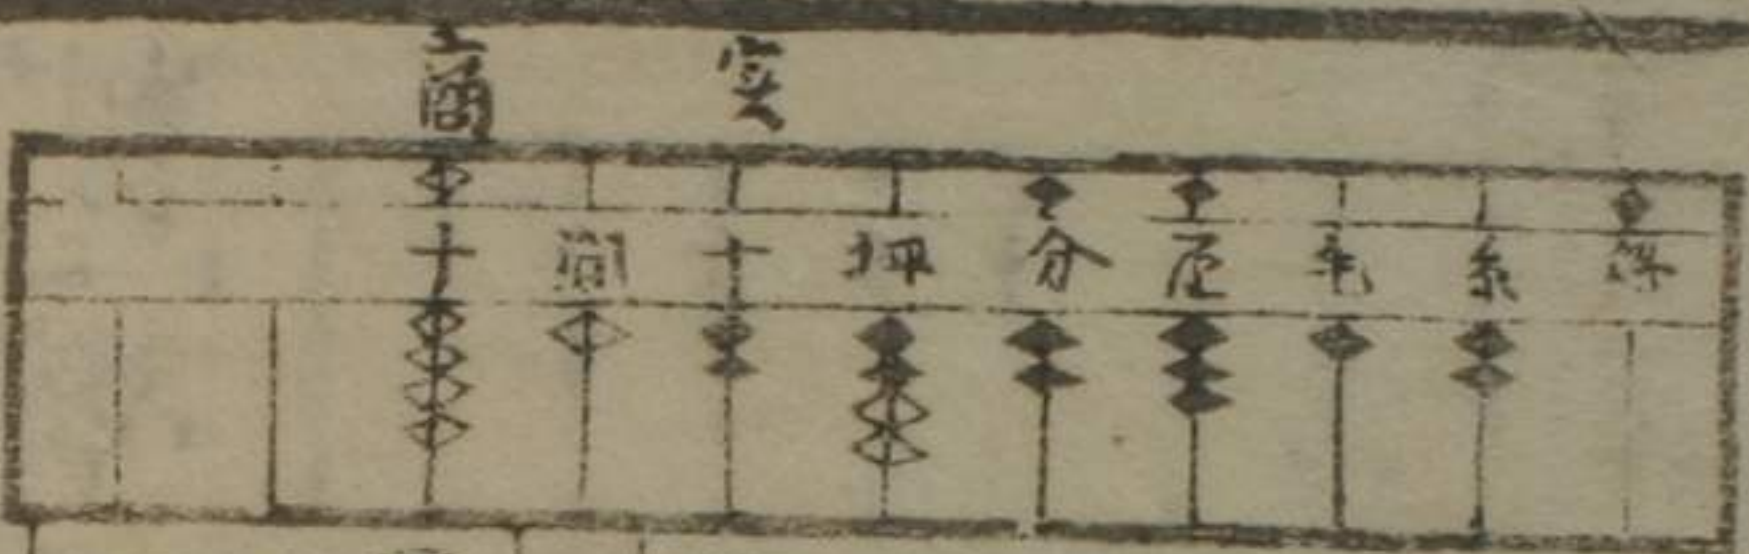 商 実
十 間 十 坪 分 厘 毛 糸